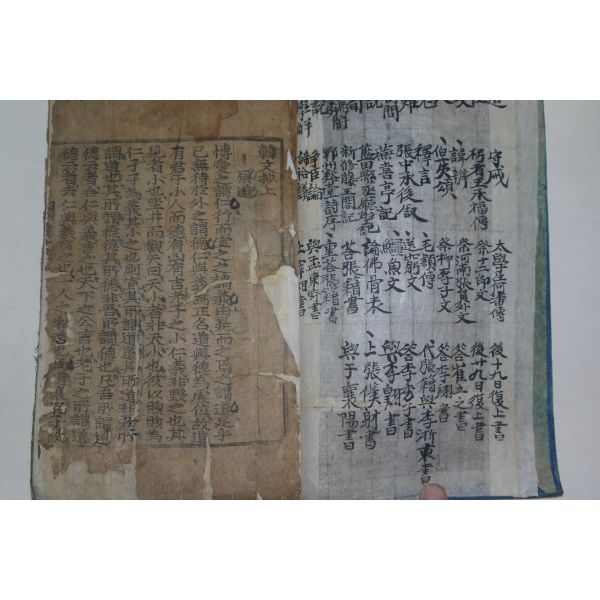 守戒
圬者王承福傳
諱辨
伯夷頌
釋言
張中丞後叙
燕喜亭記
藍田縣丞廳壁記
新修滕王閣記
鄆州谿堂詩序
爭臣論
禘祫議
太學生何蕃傳
祭十二郎文
祭河南張員外文
祭柳子厚文
毛穎傳
送窮文
鱷魚文
論佛骨表
答張籍書
重答張籍書
與孟東野書
上宰相書
後十九日復上書
後廿九日復上書
答崔立之書
答李翊書
代張籍與李浙東書
答李秀才書
與李翱書
上張僕射書
與于襄陽書
韓文抄上
原道
博愛之謂仁行而宜之之謂義由是而之焉之謂道足乎
已無待於外之謂德仁與義爲定名道與德爲虛位故道
有君子小人而德有凶有吉老子之小仁義非毀之也其
見者小也坐井而觀天曰天小者非天小也彼以煦煦爲
仁孑孑爲義其小之也則宜其所謂道道其所道非吾所
謂道也其所謂德德其所德非吾所謂德也凡吾所謂道
德云者合仁與義言之也天下之公言也老子之所謂道
德云者去仁與義言之也 私言也周道衰孔子沒